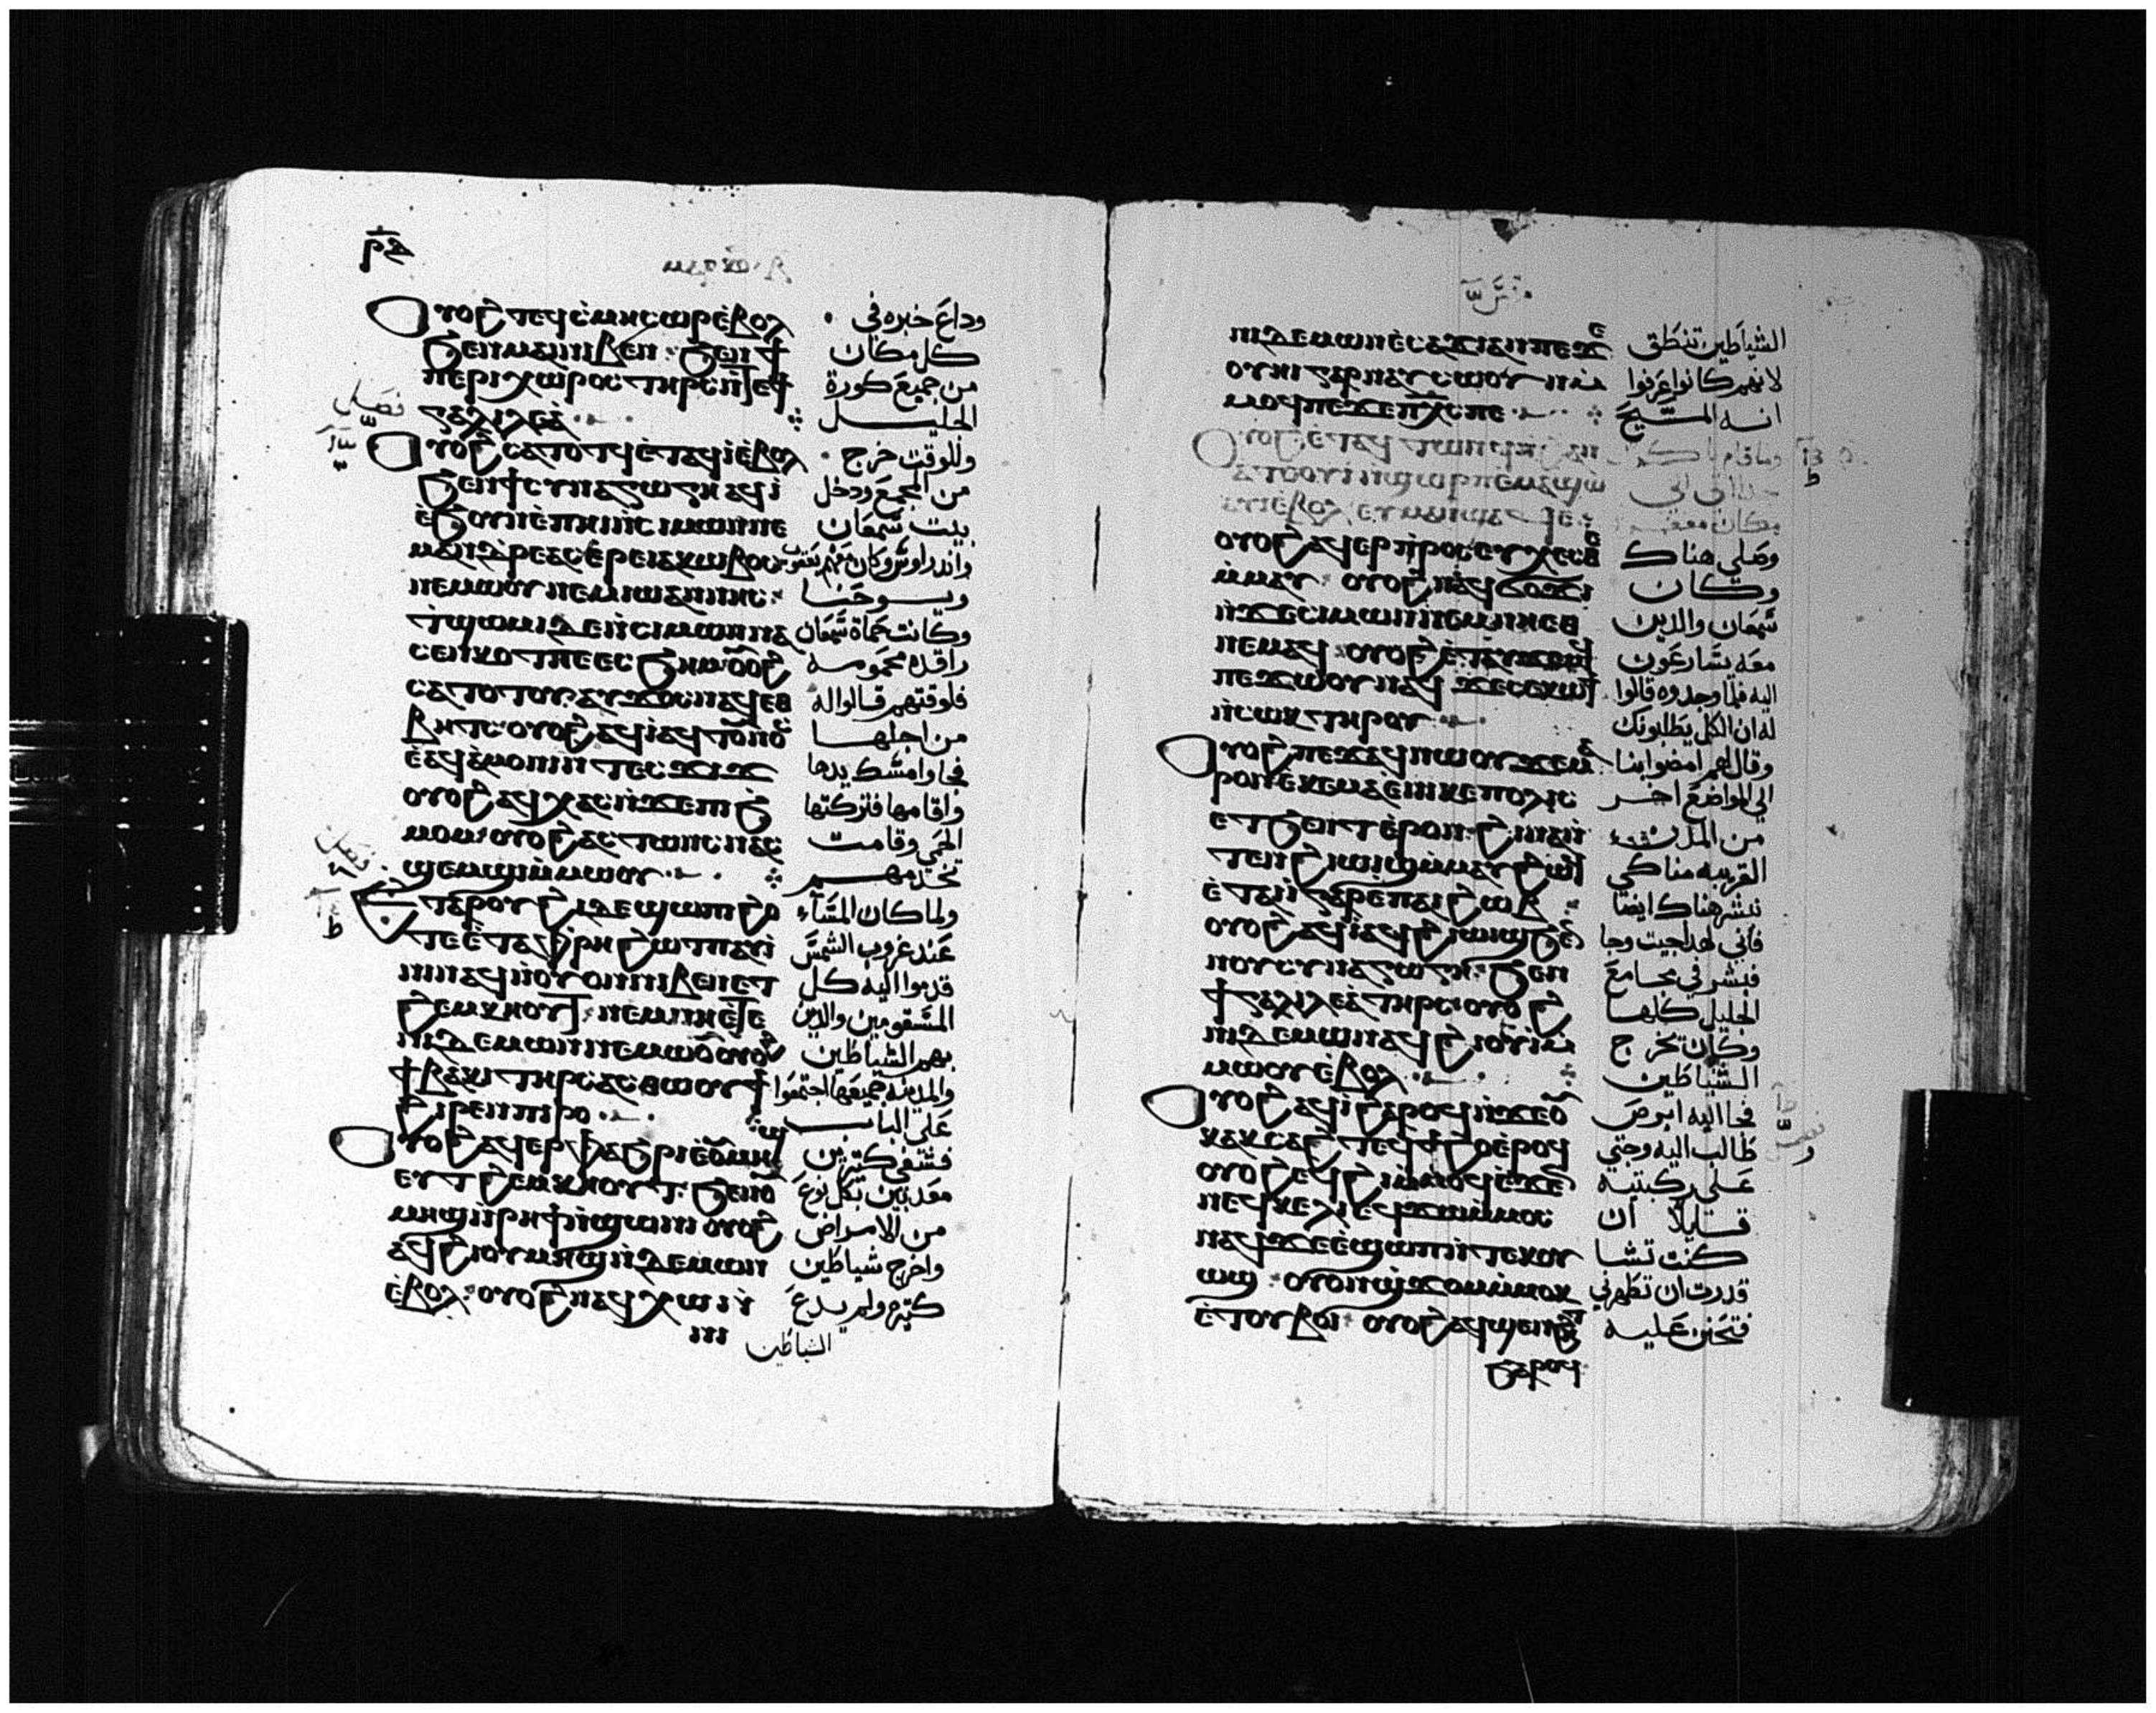 ⲣⲍ
ⲟⲩⲟϩ ⲡⲉϥⲥⲙⲏ ⲥⲱⲣ ⲉⲃⲟⲗ
ϧⲉⲛ ⲙⲁⲓ ⲛⲓⲃⲉⲛ ϧⲉⲛ ϯ
ⲡⲉⲣⲓⲭⲱⲣⲟⲥ ⲧⲏⲣⲥ ⲛⲧⲉ ϯ
ⲅⲁⲗⲓⲗⲉⲁ
ⲟⲩⲟϩ ⲥⲁⲧⲟⲧϥ ⲉⲧⲁϥⲓ ⲉⲃⲟⲗ
ϧⲉⲛ ϯⲥⲩⲛⲁⲅⲱⲅⲏ ⲁϥⲓ
ⲉϧⲟⲩⲛ ⲉⲡⲏⲓ ⲛⲥⲓⲙⲱⲛ ⲛⲉ
ⲙ ⲁⲛⲇⲣⲉⲁⲥ ⲉⲣⲉ ⲓⲁⲕⲱⲃⲟⲥ
ⲛⲉⲙⲱⲟⲩ ⲛⲉⲙ ⲓⲱⲁⲛⲛⲏⲥ
ϯϣⲱⲙⲓ ⲇⲉ ⲛⲥⲓⲙⲱⲛ ⲛⲁ
ⲥⲉⲛⲕⲟⲧ ⲡⲉ ⲉⲥϧⲏⲙ ⲟⲩⲟϩ
ⲥⲁⲧⲟⲧⲟⲩ ⲁⲩϫⲟⲥ ⲛⲁϥ ⲉⲑ
ⲃⲏⲧⲥ ⲟⲩⲟϩ ⲁϥⲓ ⲁϥⲧⲟⲩⲛⲟⲥ
ⲉⲁϥⲁⲙⲟⲛⲓ ⲛⲧⲉⲥϫⲓϫ
ⲟⲩⲟϩ ⲁϥⲭⲁⲥ ⲛϫⲉ ⲡⲓϧ
ⲙⲟⲙ ⲟⲩⲟϩ ⲁⲥⲧⲱⲛⲥ ⲛⲁⲥ
ϣⲉⲙϣⲓ ⲙⲙⲱⲟⲩ
ⲉⲧⲁ ⲣⲟⲩϩⲓ ⲇⲉ ϣⲱⲡⲓ ϩⲟ
ⲧⲉ ⲉⲧⲁ ⲫⲣⲏ ϩⲱⲧⲡ ⲁⲩⲓ
ⲛⲓ ⲛⲁϥ ⲛⲟⲩⲟⲛ ⲛⲓⲃⲉⲛ ⲉⲧ
ϩⲉⲙⲕⲏⲟⲩⲧ ⲛⲉⲙ ⲛⲏ ⲉⲧⲉ
ⲛⲓⲇⲉⲙⲱⲛ ⲛⲉⲙⲱⲟⲩ ⲟⲩⲟϩ
ϯⲃⲁⲕⲓ ⲧⲏⲣⲥ ⲁⲥⲑⲱⲟⲩϯ
ϩⲓⲣⲉⲛ ⲡⲓⲣⲟ
ⲟⲩⲟϩ ⲁϥⲉⲣⲫⲁϧⲣⲓ ⲉⲟⲩⲙⲏϣ
ⲉⲩⲧϩⲉⲙⲕⲏⲟⲩⲧ ϧⲉⲛ ⲟⲩ
ⲙⲏϣ ⲛⲣⲏϯ ⲛϣⲱⲛⲓ ⲟⲩⲟϩ
ⲁϥϩⲓ ⲟⲩⲙⲏϣ ⲛⲇⲉⲙⲱⲛ
ⲉⲃⲟⲗ ⲟⲩⲟϩ ⲛⲁϥⲭⲱ
ⲛⲛⲓ
وداع خبره في
كل مكان
من جميع كورة
الجليل
وللوقت خرج
من المجمع ودخل
بيت سمعان
واندراوس وكان معهم يعقوب
ويوحنا
وكانت حماة سمعان
راقدة محمومه
فلوقتهم قالوا له
من اجلها
فجا وامسك يدها
واقامها فتركتها
الحمى وقامت
تخدمهم
ولما كان المساء
عند غروب الشمس
قدموا اليه كل
المسقومين والذين
بهم الشياطين
والمدينه جميعها اجتمعوا
علي الباب
فشفي كثيرين
معذبين بكل نوع
من الامراض
واخرج شياطين
كثيره ولم يدع
الشياطين
فصل
فصل
ⲛⲓⲇⲉⲙⲱⲛ ⲉⲥⲁϫⲓ ⲁⲛ ⲡⲉ ϫⲉ
ⲟⲩⲏⲓ ⲅⲁⲣ ⲛⲁⲩⲥⲱⲟⲩⲛ ⲙ
ⲙⲟϥ ⲡⲉ ϫⲉ ⲡⲭⲥ ⲡⲉ
ⲟⲩⲟϩ ⲉⲧⲁϥⲧⲱⲛϥ ⲛϩⲁⲛ
ⲁⲧⲟⲟⲩⲓ ⲛϣⲱⲣⲡ ⲉⲙⲁϣⲱ
ⲟⲩⲟϩ ⲁϥⲉⲣⲡⲣⲟⲥⲉⲩⲭⲉⲥⲑⲉ
ⲙⲙⲁⲩ ⲟⲩⲟϩ ⲛⲁϥϭⲟϫⲓ
ⲛϫⲉ ⲥⲓⲙⲱⲛ ⲛⲉⲙ ⲛⲏ ⲉⲑ
ⲛⲉⲙⲁϥ ⲟⲩⲟϩ ⲉⲧⲁⲩϫⲉⲙϥ
ⲡⲉϫⲱⲟⲩ ⲛⲁϥ ϫⲉ ⲥⲉⲕⲱϯ
ⲛⲥⲱⲕ ⲧⲏⲣⲟⲩ
ⲟⲩⲟϩ ⲡⲉϫⲁϥ ⲛⲱⲟⲩ ϫⲉ ⲙⲁ
ⲣⲟⲛ ⲉⲕⲉⲙⲁ ⲉⲛⲓⲕⲉⲡⲟⲗⲓⲥ
ⲉⲧϧⲉⲛⲧ ⲉⲣⲟⲛ ϩⲓⲛⲁ ⲛ
ⲧⲉⲛϩⲓⲱⲓϣ ⲙⲙⲁⲩ ϩⲱϥ
ⲉⲧⲁⲓⲓ ⲅⲁⲣ ⲉⲡⲁⲓϩⲱⲃ
ⲟⲩⲟϩ ⲁϥⲓ ⲁϥϩⲓⲱⲓϣ ϧⲉⲛ
ⲛⲟⲩⲥⲩⲛⲁⲅⲱⲅⲏ ϧⲉⲛ
ϯⲅⲁⲗⲓⲗⲉⲁ ⲧⲏⲣⲥ ⲟⲩⲟϩ
ⲛⲓⲇⲉⲙⲱⲛ ⲛⲁϥϩⲓⲟⲩⲓ ⲙ
ⲙⲱⲟⲩ ⲉⲃⲟⲗ
ⲟⲩⲟϩ ⲁϥⲓ ϩⲁⲣⲟϥ ⲛϫⲉ ⲟⲩ
ⲕⲁⲕⲥⲉϩⲧ ⲉϥϯϩⲟ ⲉⲣⲟϥ
ⲟⲩⲟϩ ⲉϥϩⲓ ⲙⲙⲟϥ ⲉϫⲉⲛ
ⲛⲉϥⲕⲉⲗⲓ ⲉϥϫⲱ ⲙⲙⲟⲥ
ⲛⲁϥ ϫⲉ ⲉϣⲱⲡ ⲛⲧⲉⲕⲟⲩ
ⲱϣ ⲟⲩⲟⲛ ϣϫⲟⲙ ⲙⲙⲟⲕ
ⲉⲧⲟⲩⲃⲟⲓ ⲟⲩⲟϩ ⲁϥϣⲉⲛϩⲏⲧ
ϧⲁⲣⲟϥ
الشياطين تنطق
لانهم كانوا عرفوا
انه المسيح
وصلي هناك
وكان
سمعان والذين
معه يسارعون
اليه فلما وجدوه قالوا
له ان الكل يطلبونك
وقال لهم امضوا بنا
الي المواضع اخر
من المدن
القريبه منا كي
نبشر هناك ايضا
فاني لهذا جيت وجا
فبشر في مجامع
الجليل كلها
وكان يخرج
الشياطين
فجا اليه ابرص
طالب اليه وجثي
علي ركبتيه
قايلا ان
كنت تشا
قدرت ان تطهرني
فتحنن عليه